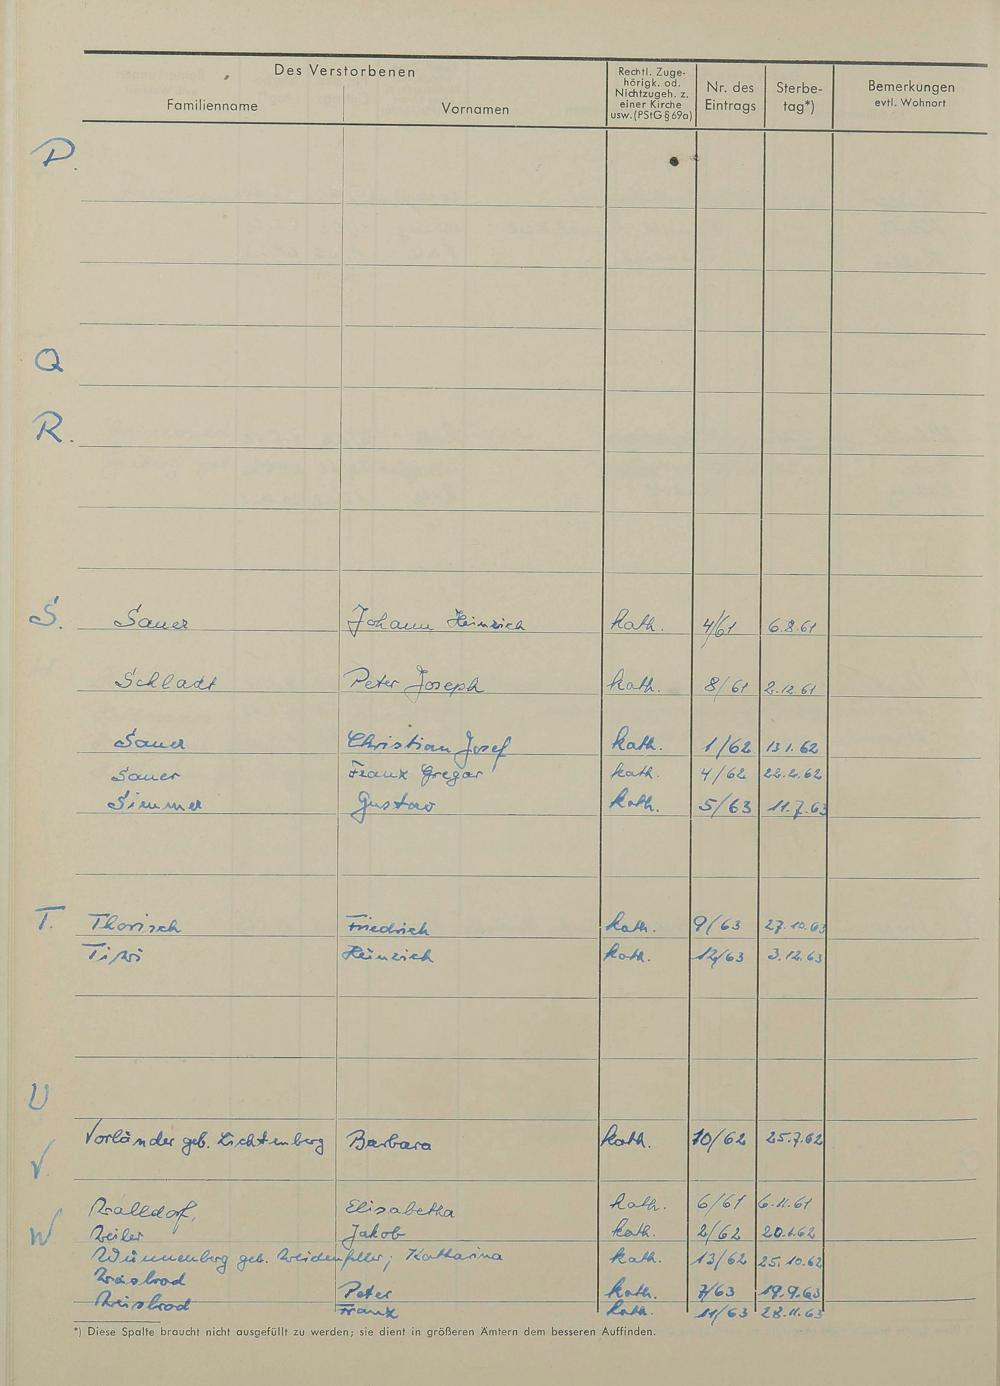 Des Verstorbenen
Familienname Vornamen
Rechtl. Zuge-
hörigk. od.
Nichtzugeh. z.
einer Kirche
usw. (PStG § 69a)
Nr. des
Eintrags
Sterbe-
tag*)
Bemerkungen
evtl. Wohnort
P.
Q
R.
S. Sauer Johann Heinrich kath. 4/61 6.8.61
Schladt Peter Joseph kath. 8/61 2.12.61
Sauer Christian Josef kath. 1/62 13 1. 62
Sauer Franz Gregor kath. 4/62 22.2.62
Simmer Gustav kath. 5/63 11.7.63
T. Thorisch Friedrich kath. 9/63 27.10.63
Heinrich kath. 12/63 3.12.63
U
Vorländer geb. Lichtenberg Barbara kath. 10/62 25.7.62
V
Elisabetha kath. 6/61 6.11.61
W Weiler Jakob kath. 2/62 20.1.62
Wünnenberg geb. Weidenfeller, Katharina kath. 13/62 25.10.62
Weisbrod
Peter kath. 7/63 19.9.63
Weisbrod Franz kath. 11/63 28.11.63
*) Diese Spalte braucht nicht ausgefüllt zu werden; sie dient in größeren Ämtern dem besseren Auffinden.